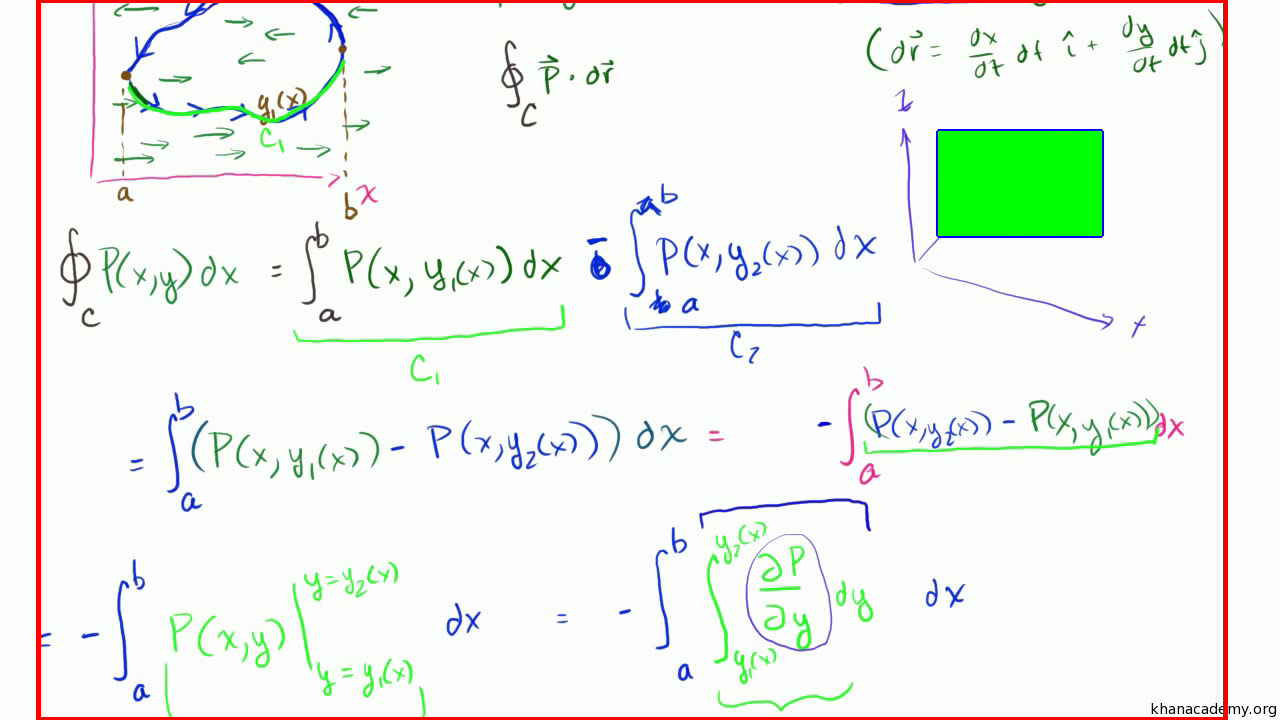 (dr⃗ = dx/dt dt î + dy/dt dt ĵ)
∮_C P⃗ · dr⃗
y₁(x)
C₁
a b x
∮_C P(x,y) dx = ∫_a^b P(x, y₁(x)) dx - ∫_a^b P(x, y₂(x)) dx
C₁ C₂
= ∫_a^b (P(x, y₁(x)) - P(x, y₂(x))) dx = - ∫_a^b (P(x, y₂(x)) - P(x, y₁(x))) dx
= - ∫_a^b P(x,y) |_{y = y₁(x)}^{y = y₂(x)} dx = - ∫_a^b ∫_{y₁(x)}^{y₂(x)} ∂P/∂y dy dx
khanacademy.org